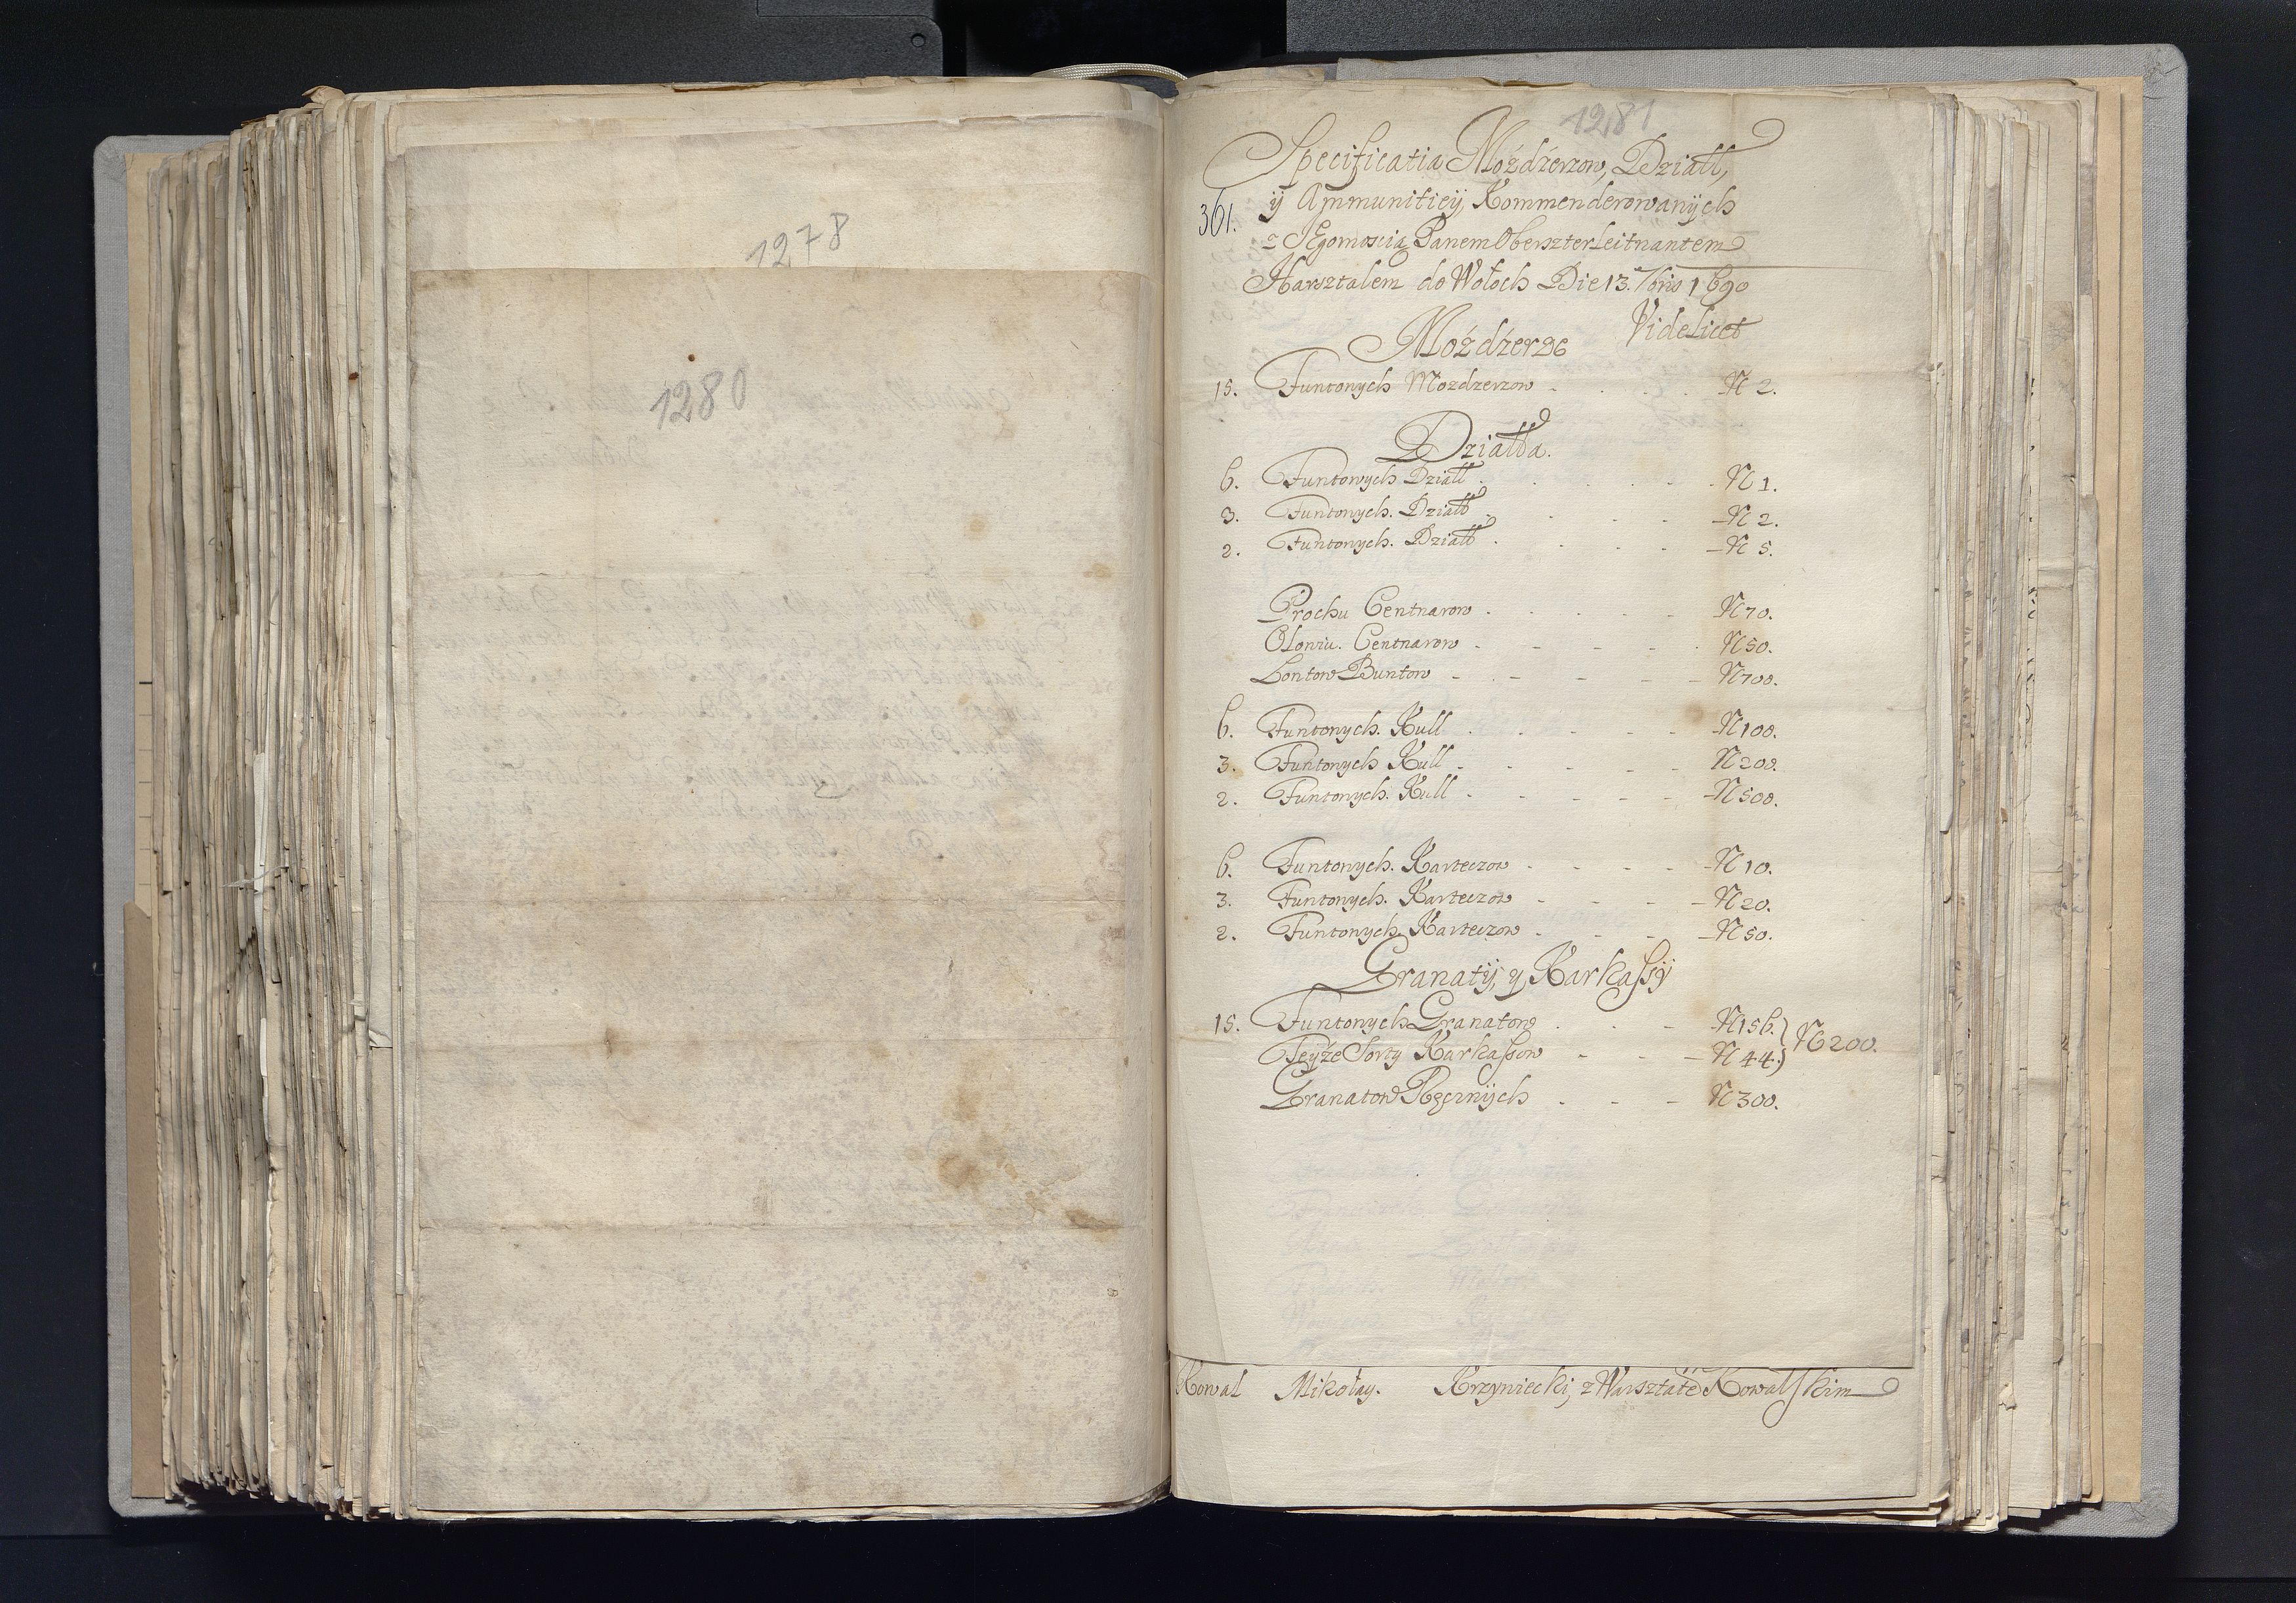 1278
1280
1281
361.
Specificatia Moźdźerzow, Dziatł,
ÿ Ammunitieÿ, Kommenderowanÿch
z JEgomoscią Panem Oberszterleitnantem
Harsztalem do Wołoch Die 13. 7bris 1690
Videlicet
Moźdźerze
15. Funtonych Mozdzerzow - N 2.
Działła.
6. Funtowych Dziatł - N 1.
3. Funtonych. Dziatł - N 2.
2. Funtonych. Dziatł - N 5.
Prochu Centnarow - N 70.
Ołowiu. Centnarow - N 50.
Lontow Buntow - N 700.
6. Funtonych. Kull - N 100.
3. Funtonych Kull - N 200.
2. Funtonych. Kull - N 500.
6. Funtonych. Karteczow - N 10.
3. Funtonych. Karteczow - N 20.
2. Funtonych. Karteczow - N 50.
Granatÿ, y Karkaſsÿ
15. Funtonych Granatow - N 156. } N 200.
Teyże Sorty Karkaſsow - N 44.
Granatow Ręcznÿch - N 300.
Kowal Mikołay. Krzyniecki, z Warsztatē Kowalſkim